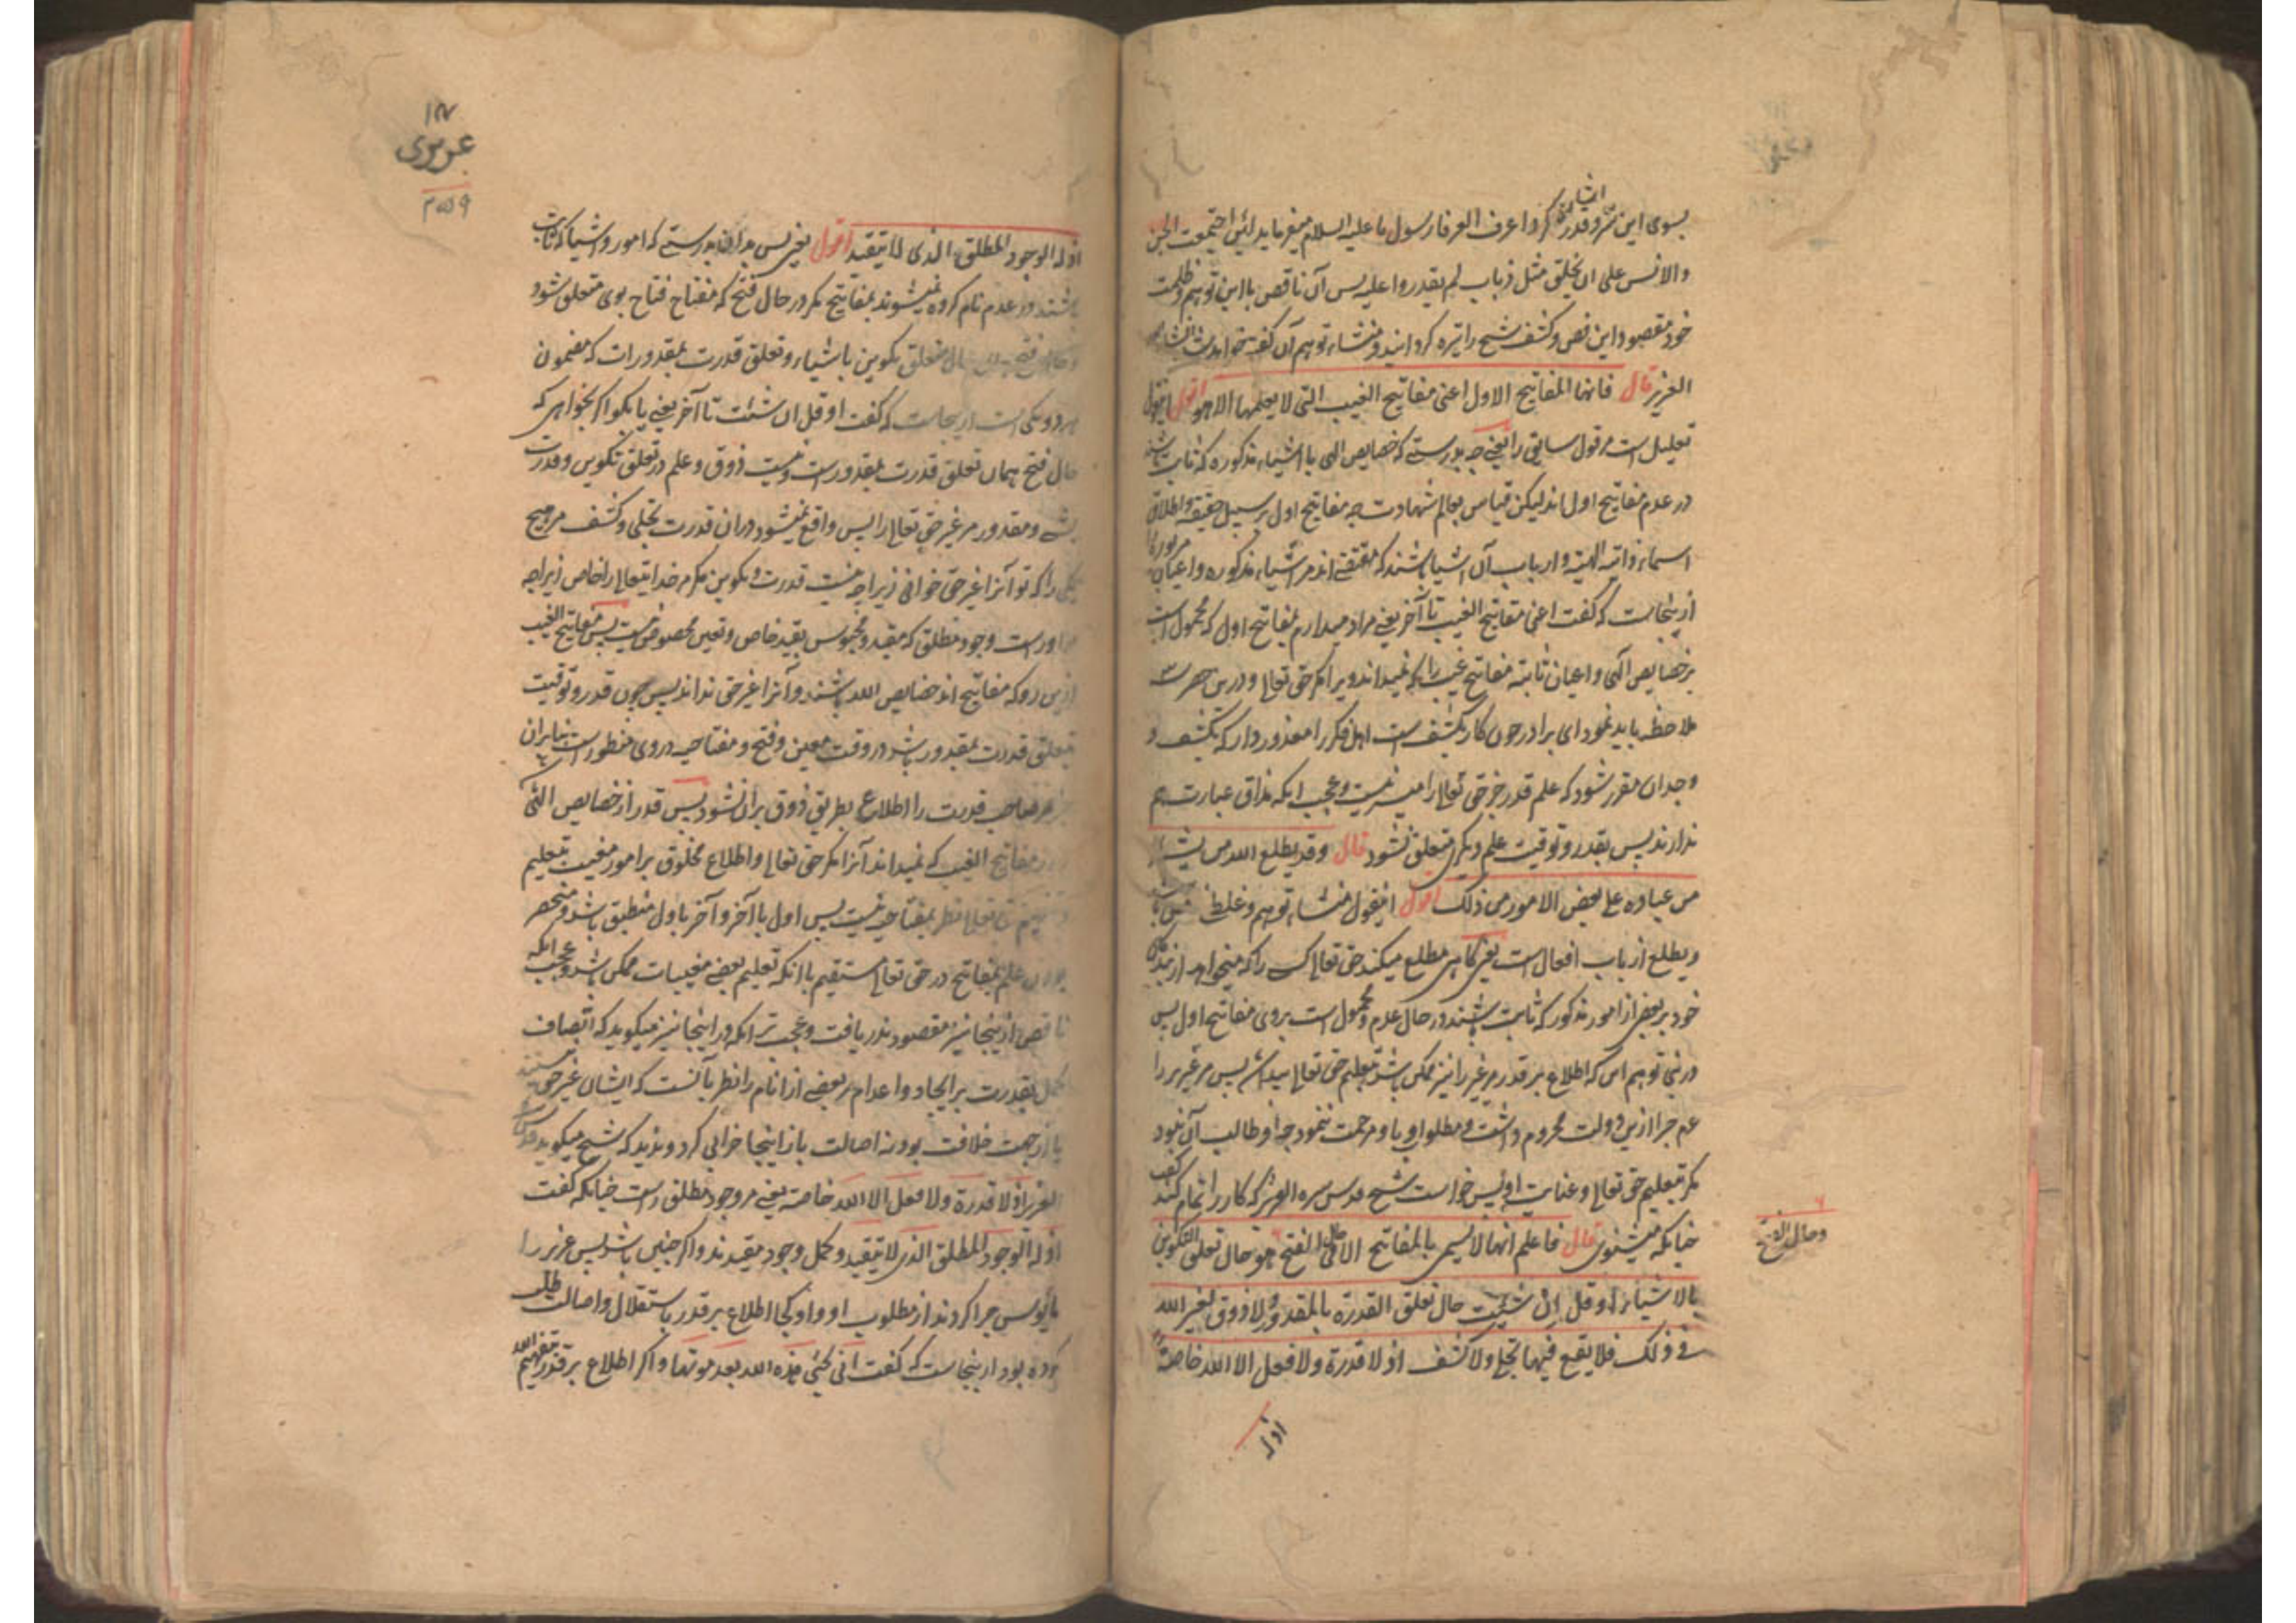 بسوی این سر و قدر کرد اعرف العرفا رسول ما علیه السلام میفرماید لئن اجتمعت الجن
والانس علی ان یخلق مثل ذباب لم یقدروا علیه پس آن ناقص با این توهم و ظلمت
خود مقصود این نص و کشف شیخ را تیره گردانید و منشاء توهم آن گفته خواهد شد
العزیز قال فانها المفاتیح الاول اعنی مفاتیح الغیب التی لا یعلمها الا هو اقول
تعلیل است مر قول سابق را یعنی چه بدرستے که خصایص الهی با اشیاء مذکوره که ثابت باشند
در عدم مفاتیح اول اند لیکن قیاس بعالم شهادت چه مفاتیح اول بر سبیل حقیقة و اطلاق
اسماء ذاتیه الهیه و ارباب آن اشیا باشند که مقتضے اند مر اشیاء مذکوره و اعیان
ازینجاست که گفت اعنی مفاتیح الغیب تا آخر یعنے مراد میدارم بمفاتیح اول که محمول است
بر خصایص آلهی و اعیان ثابته مفاتیح غیب را که نمیداند ویرا مگر حق تعالی و درین حصر
ملاحظه باید نمود ای برادر چون کار بکشف است اهل فکر را معذور دار که بکشف و
وجدان مقرر شود که علم قدر جز حق تعالی را میسر نیست و عجب اینکه مذاق عبارت هم
ندارند پس بقدر و توقیت علم دیگری متعلق نشود قال وقد یطلع الله من یشاء
من عباده علے بعض الامور من ذلک اقول اینقول منشاء توهم و غلط
و یطلع از باب افعال است یعنی گاهی مطلع میکند حق تعالی کسے را که میخواهد از بندگان
خود بر بعض از امور مذکور که ثابت باشند در حال عدم و محمول است بروی مفاتیح اول پس
که اطلاع بر قدر مر غیر را نیز ممکن باشد بتعلیم حق تعالی پس مر عزیر را
هم چرا ازین دولت محروم داشت و مطلوب او باو مرحمت ننمود چه او طالب آن نبود
مگر بتعلیم حق تعالی و عنایت او پس خواست شیخ قدس سره العزیز که کار را تمام کند
چنانکه میشنوی قال فاعلم انها لا تسمی بالمفاتیح الا فی حال الفتح هو حال تعلق التکوین
وحال الفتح
بالاشیاء او قل ان شئت حال تعلق القدرة بالمقدور ولا ذوق لغیر الله
فی ذلک فلا یقع فیها تجل ولا کشف اذ لا قدرة ولا فعل الا لله خاصة
اذ له
۱۸۷
اذ له الوجود المطلق الذی لا یتقید اقول یعنی پس بدان بدرستے که امور و اشیا که ثابت
باشند در عدم نام کرده نمیشوند بمفاتیح مگر در حال فتح که مفتاح فتاح بوی متعلق شود
متعلق تکوین باشیاء و تعلق قدرت بمقدورات که مضمون
هر دو یکی است ازینجاست که گفت او قل ان شئت تا آخر یعنے یا بگو اگر بخواهی که
حال فتح همان تعلق قدرت بمقدور است و نیست ذوق و علم در تعلق تکوین و قدرت
و مقدور مر غیر حق تعالی را پس واقع نمیشود در ان قدرت تجلی و کشف مر هیچ
یکی را که تو آنرا غیر حق خوانی زیرا چه نیست قدرت و تکوین مگر مر خدایتعالی را خاص زیرا چه
مر او راست وجود مطلق که مقید و محبوس بقید خاص و تعین مخصوص نیست پس مفاتیح الغیب
ازین رو که مفاتیح اند خصایص الله باشند و آنرا غیر حق نداند پس چون قدر و توقیت
تعلق قدرت بمقدور باشد در وقت معین و فتح و مفتاحیه در وی منظور است بنابران
صاحب قدرت را اطلاع بطریق ذوق بران نشود پس قدر از خصایص الهی
مفاتیح الغیب که نمیداند آنرا مگر حق تعالی و اطلاع مخلوق بر امور مغیب بتعلیم
نظر بمفتاحیه نیست پس اول با آخر و آخر با اول منطبق باشد و منحصر
بودن علم بمفاتیح در حق تعالی مستقیم با آنکه تعلیم بعضے مغیبات ممکن باشد و عجب اینکه
ناقص ازینجا نیز مقصود در نیافت و عجب تر اینکه در اینجا نیز میگوید که اتصاف
کمل بقدرت بر ایجاد و اعدام بر بعضے از انام را نظر بآنست که ایشان غیر حق نیستند
یا از جهت خلافت بود نه اصالت باز اینجا خرابی کرد و ندید که شیخ میگوید قدس
العزیز اذ لا قدرة ولا فعل الا لله خاصة یعنے مر وجود مطلق راست چنانکه گفت
اذ له الوجود المطلق الذی لا یتقید و کمل وجود مقیدند و اگر چنین باشد پس عزیر را
مأیوس چرا کردند از مطلوب او و او کجا اطلاع بر قدر باستقلال و اصالت طلب
کرده بود ازینجاست که گفت انی یحیی هذه الله بعد موتها و اگر اطلاع بر قدر بتفهیم الله